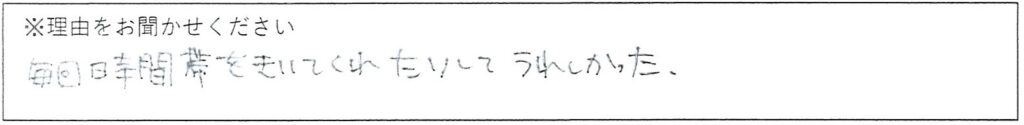 ※理由をお聞かせください
毎回時間帯をきいてくれたりしてうれしかった、